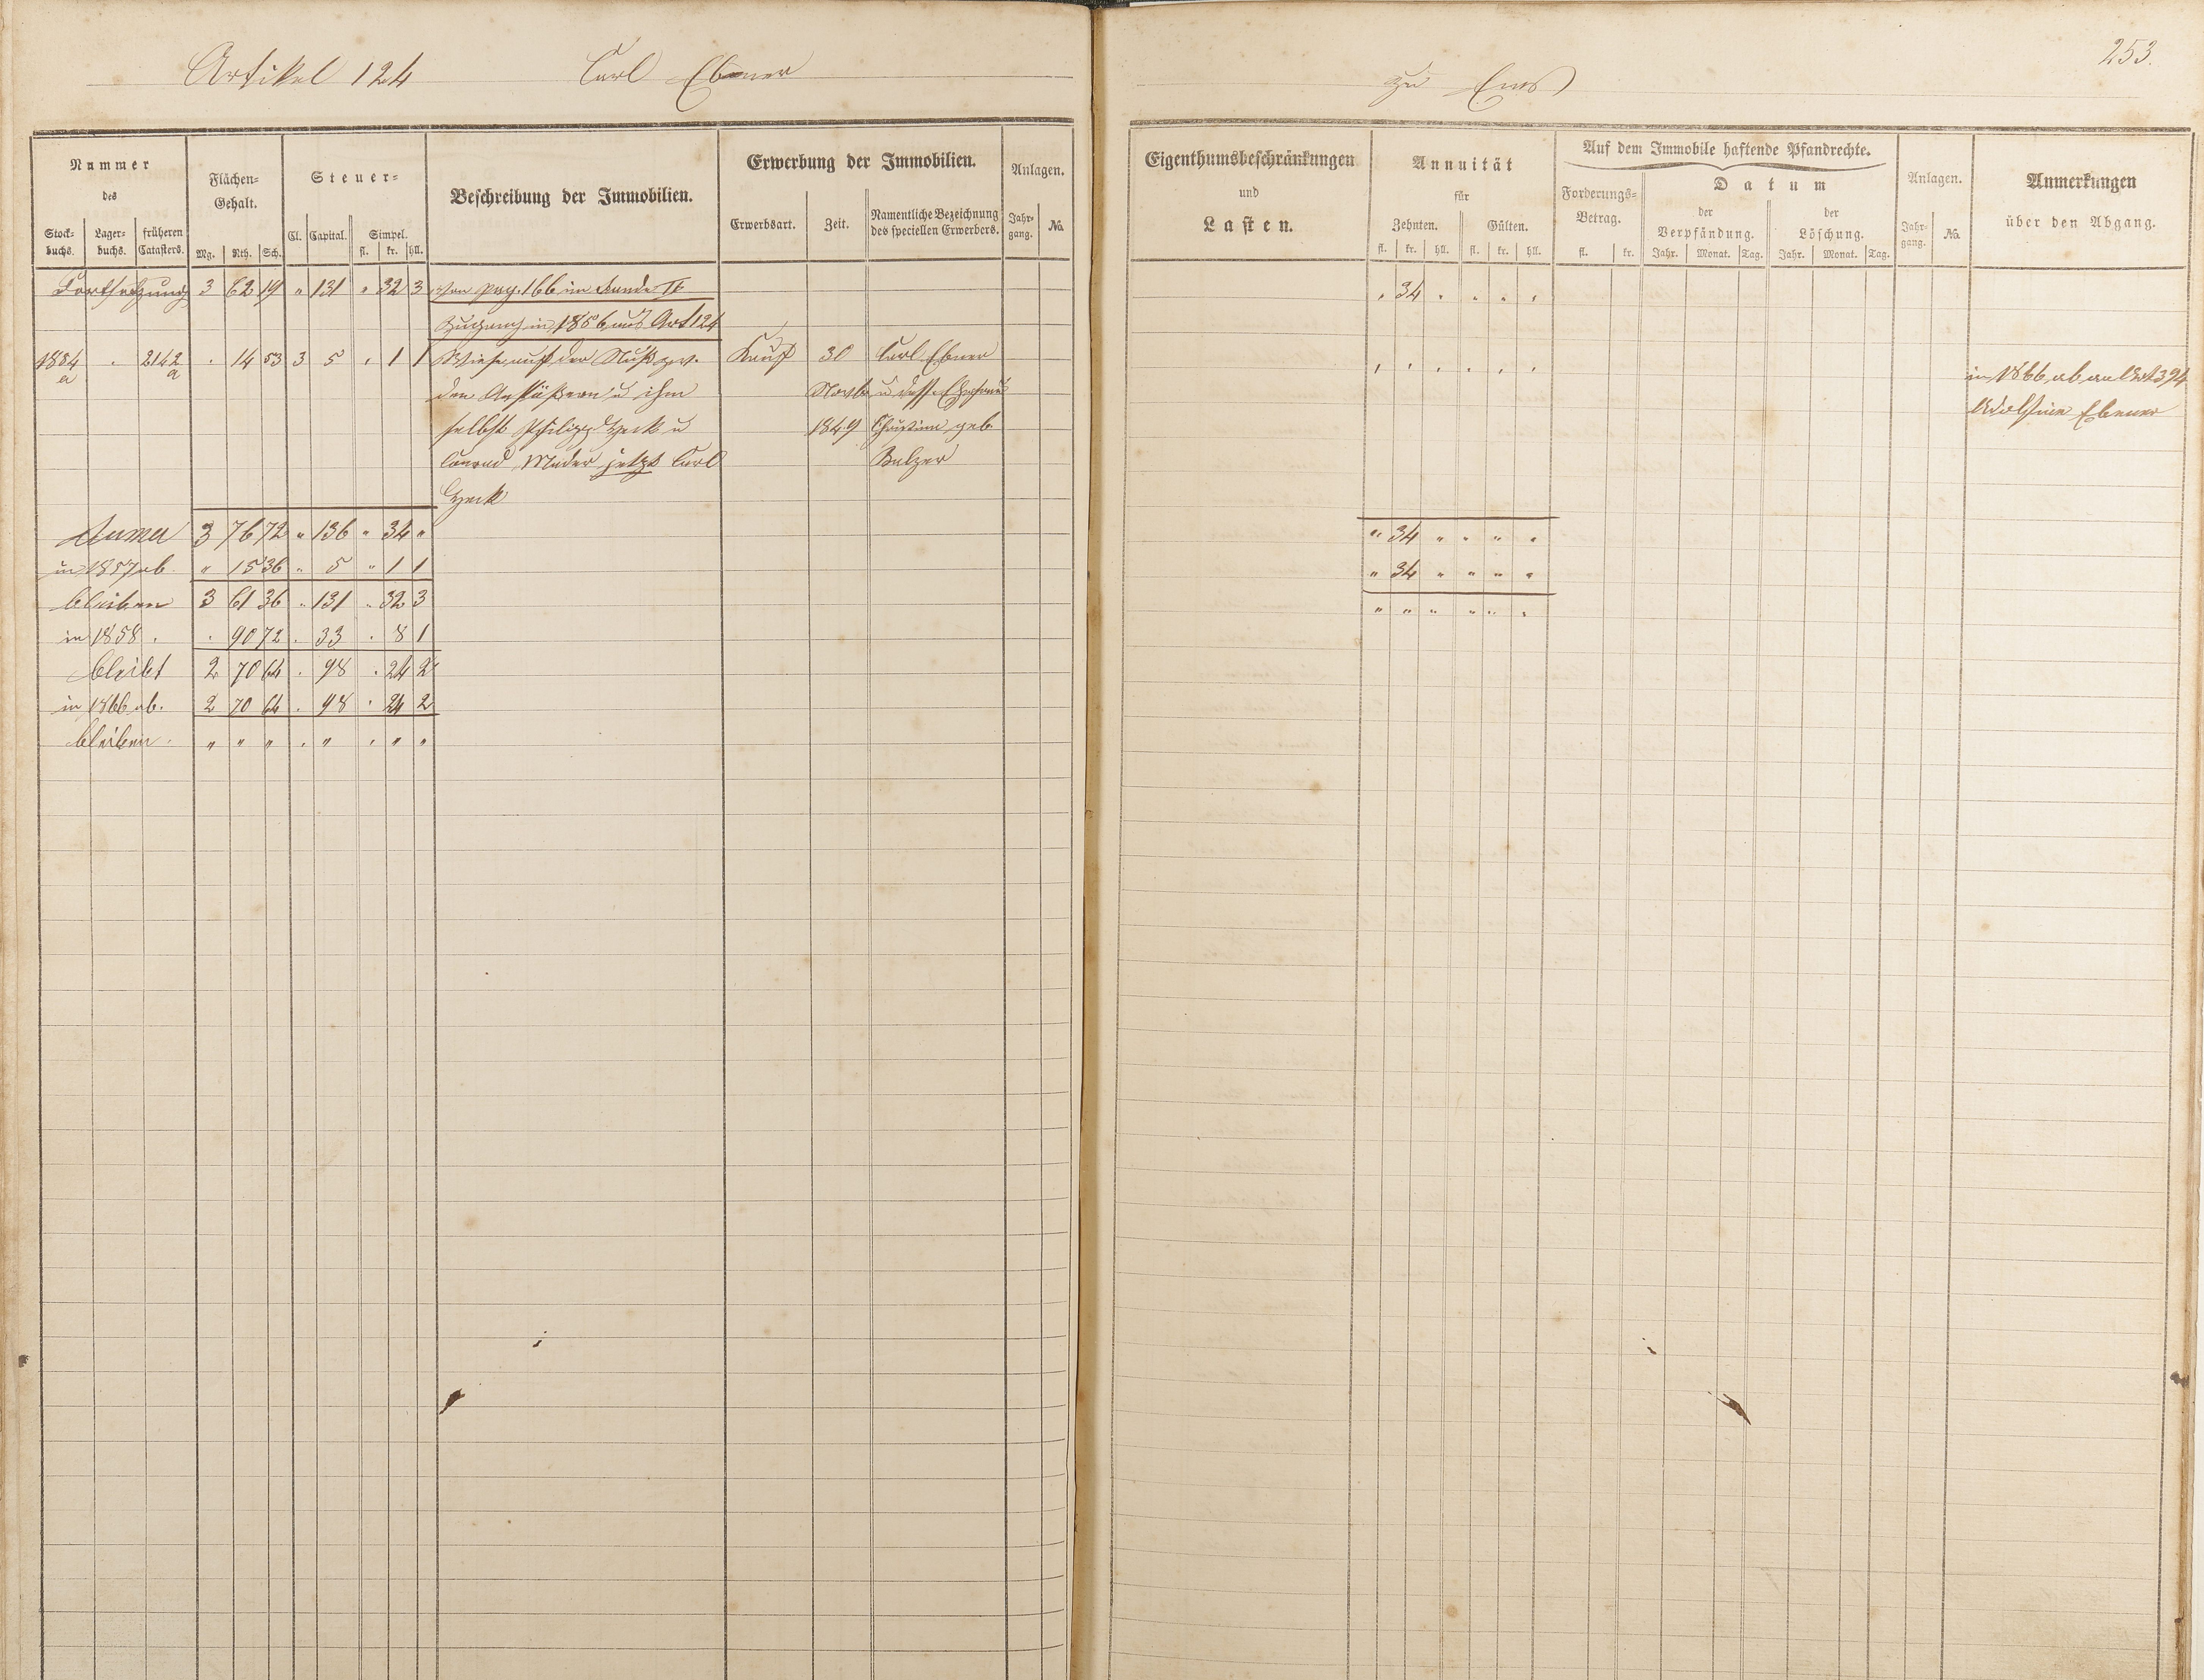 Artikel 124 Carl Ebener
zu Ems
253.
Nummer des
Stock-buchs. Lager-buchs. früheren Catasters.
Flächen-Gehalt.
Mg. Rth. Sch.
Steuer-
Cl. Capital. Simpel.
fl. kr. hll.
Beschreibung der Immobilien.
Erwerbung der Immobilien.
Erwerbsart. Zeit. Namentliche Bezeichnung des speciellen Erwerbers.
Anlagen.
Jahr-gang. No.
Eigenthumsbeschränkungen
und
Lasten.
Annuität
für
Zehnten. Gülten.
fl. kr. hll. fl. kr. hll.
Auf dem Immobile haftende Pfandrechte.
Forderungs-Betrag.
fl. kr.
Datum
der Verpfändung. der Löschung.
Jahr. Monat. Tag. Jahr. Monat. Tag.
Anlagen.
Jahr-gang. No.
Anmerkungen
über den Abgang.
Fortsetzung 3 62 19 " 131 " 32 3 von pag. 166 im Bande II " 34 " " " "
Zugang in 1856 aus Art 124
1884 a " 2142 a " 14 53 3 5 " 1 1 Wiese auf der zw. Kauf 30 Carl Ebner " " " " " "
in 1866 ab an Art 394
den u ihm Novbr u dess. Ehefrau
Ebener
selbst Philipp Heck u 1849 Christine geb
Conrad Mader jetzt Carl Balzer
Heck
Summa 3 76 72 " 136 " 34 " " 34 " " " "
in 1857 ab " 15 36 " 5 " 1 1 " 34 " " " "
bleiben 3 61 36 " 131 " 32 3 " " " " " "
in 1858 " " 90 72 " 33 " 8 1
bleibt 2 70 64 " 98 " 24 2
in 1866 ab. 2 70 64 " 98 " 24 2
bleiben " " " " " " " "